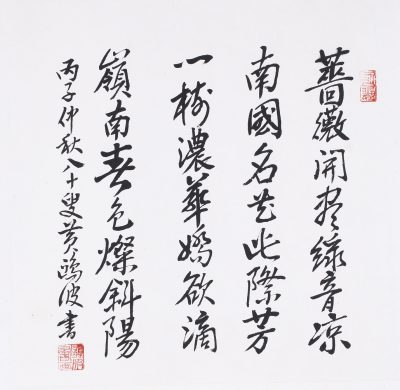 薔薇開盡綠音涼
南國名花此際芳
一樹濃華嬌欲滴
嶺南春色燦斜陽
丙子仲秋八十叟黃鷗波書